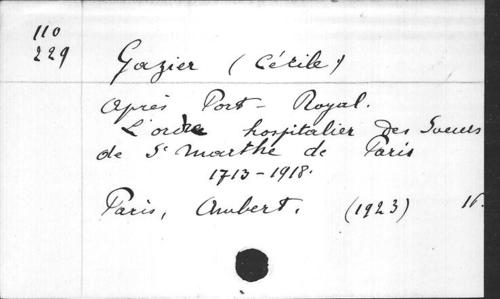 110
229
Gazier (Cécile)
Après Port-Royal.
L'ordre hospitalier des Soeurs
de Ste Marthe de Paris
1713-1918.
Paris, Ambert. (1923) 16.